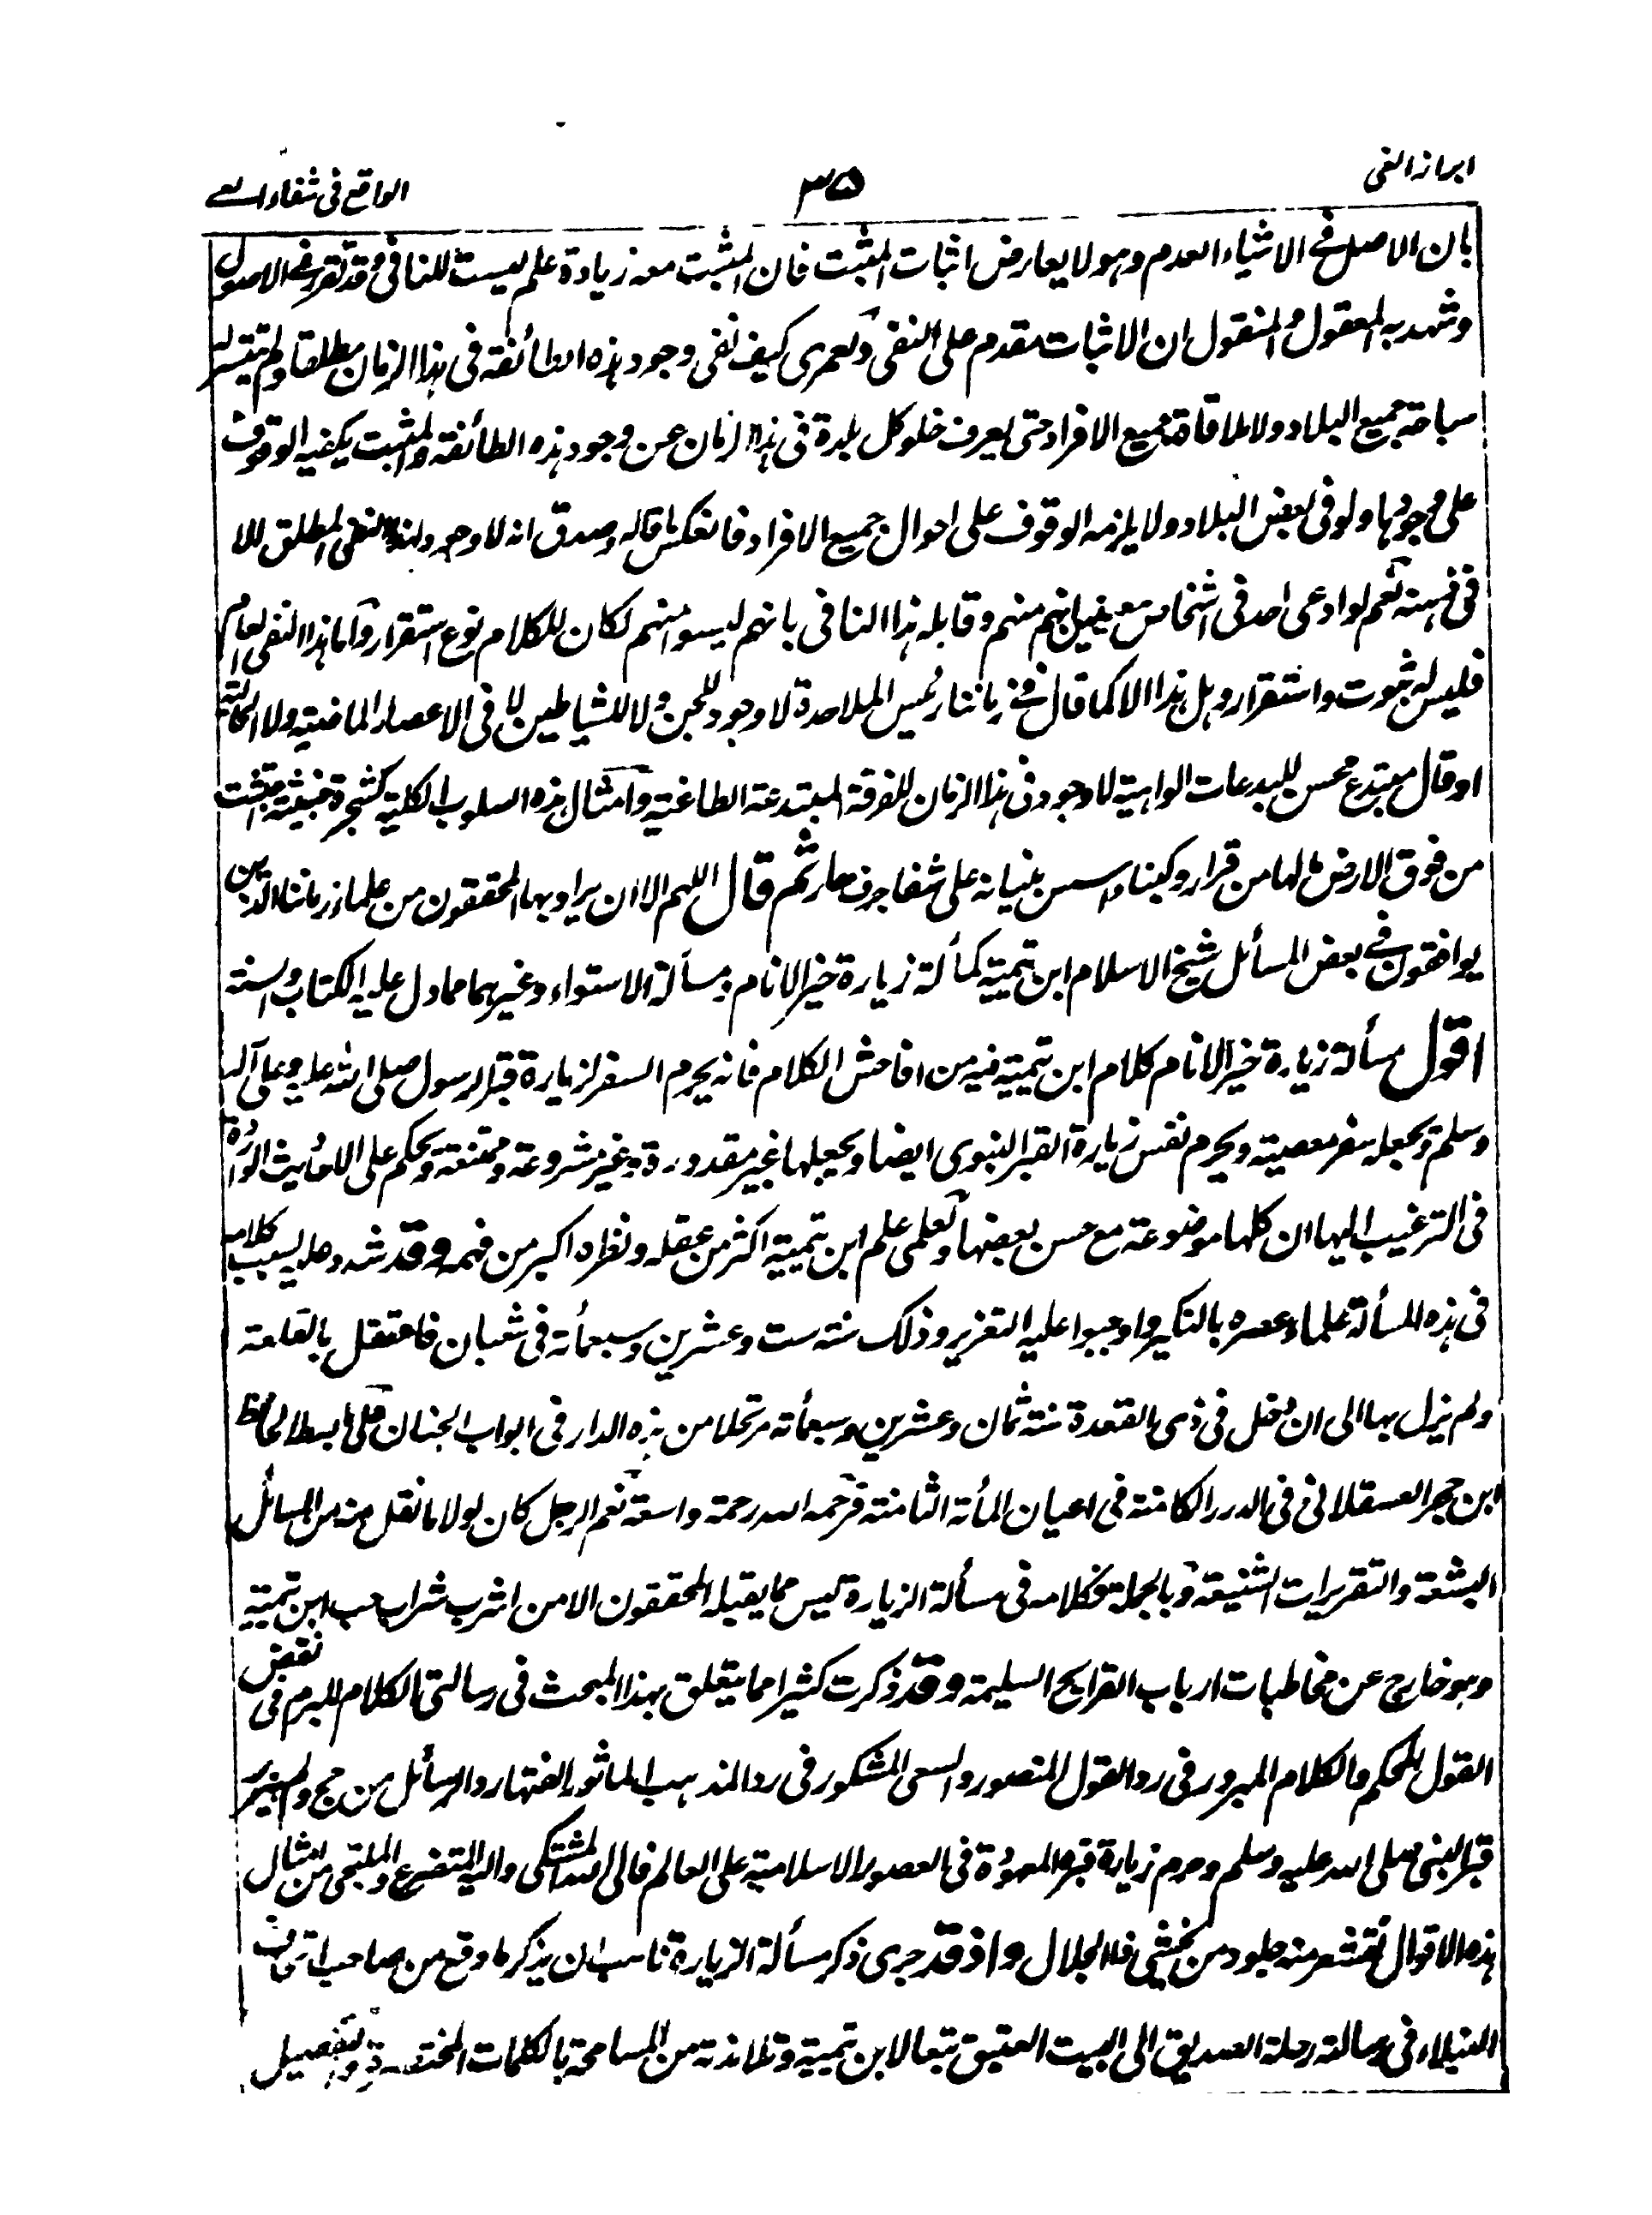 ابراز الغي
٣٥
الواقع في شفاء العي
بان الاصل في الاشياء العدم وهو لا يعارض اثبات المثبت فان المثبت معه زيادة علم ليست للنافي وقد تقرر في الاصول
وشهد به المعقول والمنقول ان الاثبات مقدم على النفي ولعمري كيف نفى وجود هذه الطائفة في هذا الزمان مطلقا ولم تتيسر له
سياحة جميع البلاد ولا ملاقاة جميع الافراد حتى يعرف خلو كل بلدة في هذا الزمان عن وجود هذه الطائفة والمثبت يكفيه الوقوف
على وجودها ولو في بعض البلاد ولا يلزمه الوقوف على احوال جميع الافراد فانعكس ما قاله وصدق انه لا وجود لهذا النفي المطلق الا
في ذهنه نعم لو ادعى احد في اشخاص معينين انهم منهم وقابله هذا النافي بانهم ليسوا منهم لكان للكلام نوع استقرار واما هذا النفي العام
فليس له ثبوت واستقرار وهل هذا الا كما قال في زماننا رئيس الملاحدة لا وجود للجن ولا للشياطين لا في الاعصار الماضية ولا الحالية
او قال مبتدع محسن للبدعات الواهية لا وجود في هذا الزمان للفرقة المبتدعة الطاغية وامثال هذه السلوب الكلية كشجرة خبيثة اجتثت
من فوق الارض ما لها من قرار وكبناء اسس بنيانه على شفا جرف هار ثم قال اللهم الا ان يراد بها المحققون من علماء زماننا الذين
يوافقون في بعض المسائل شيخ الاسلام ابن تيمية كمسألة زيارة خير الانام ومسألة الاستواء وغيرهما مما دل عليه الكتاب والسنة
اقول مسألة زيارة خير الانام كلام ابن تيمية فيه من افاحش الكلام فانه يحرم السفر لزيارة قبر الرسول صلى الله عليه وعلى آله
وسلم ويجعله سفر معصية ويحرم نفس زيارة القبر النبوي ايضا ويجعلها غير مقدورة وغير مشروعة وممتنعة ويحكم على الاحاديث الواردة
في الترغيب اليها ان كلها موضوعة مع حسن بعضها ولعلمي علم ابن تيمية اكثر من عقله ونظره اكبر من فهمه وقد شدد عليه بسبب كلامه
في هذه المسألة علماء عصره بالنكير واوجبوا عليه التعزير وذلك سنة ست وعشرين وسبعمائة في شعبان فاعتقل بالقلعة
ولم يزل بها الى ان دخل في ذي القعدة سنة ثمان وعشرين وسبعمائة مرتحلا من هذه الدار في ابواب الجنان على ما بسطه الحافظ
ابن حجر العسقلاني في الدرر الكامنة في اعيان المائة الثامنة فرحمه الله رحمة واسعة نعم الرجل كان لولا ما نقل منه من المسائل
البشعة والتقريرات الشنيعة وبالجملة فكلامه في مسألة الزيارة ليس مما يقبله المحققون الا من اشرب شراب حب ابن تيمية
وهو خارج عن مخاطبات ارباب القرايح السليمة وقد ذكرت كثيرا مما يتعلق بهذا المبحث في رسالتي الكلام المبرم في نقض
القول المحكم والكلام المبرور في رد القول المنصور والسعي المشكور في رد المذهب الماثور الفتها ردا لرسائل من حج ولم يزر
قبر النبي صلى الله عليه وسلم وحرم زيارة قبره المعهودة في العصور الاسلامية على العالم فالى الله المشتكى واليه المتضرع والملتجى من امثال
هذه الاقوال تقشعر منه جلود من يخشى ذا الجلال واذ قد جرى ذكر مسألة الزيارة ناسب ان يذكر ما وقع من صاحب اتحاف
النبلاء في رسالته رحلة الصديق الى البيت العتيق تبعا لابن تيمية وتلامذته من المسامحة بالكلمات المختصرة والتفصيل